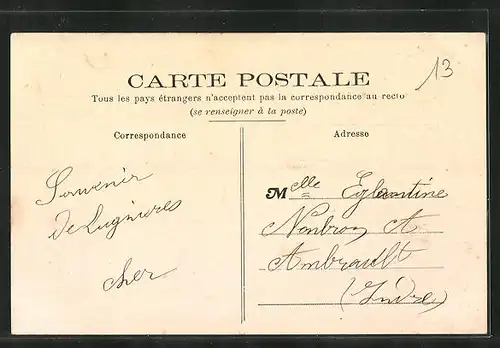 13
CARTE POSTALE
Tous les pays étrangers n'acceptent pas la correspondance au recto
(se renseigner à la poste)
Correspondance
Adresse
Souvenir
de Lugnieres
cher
Melle Eglantine
A
Ambrault
(Indre)